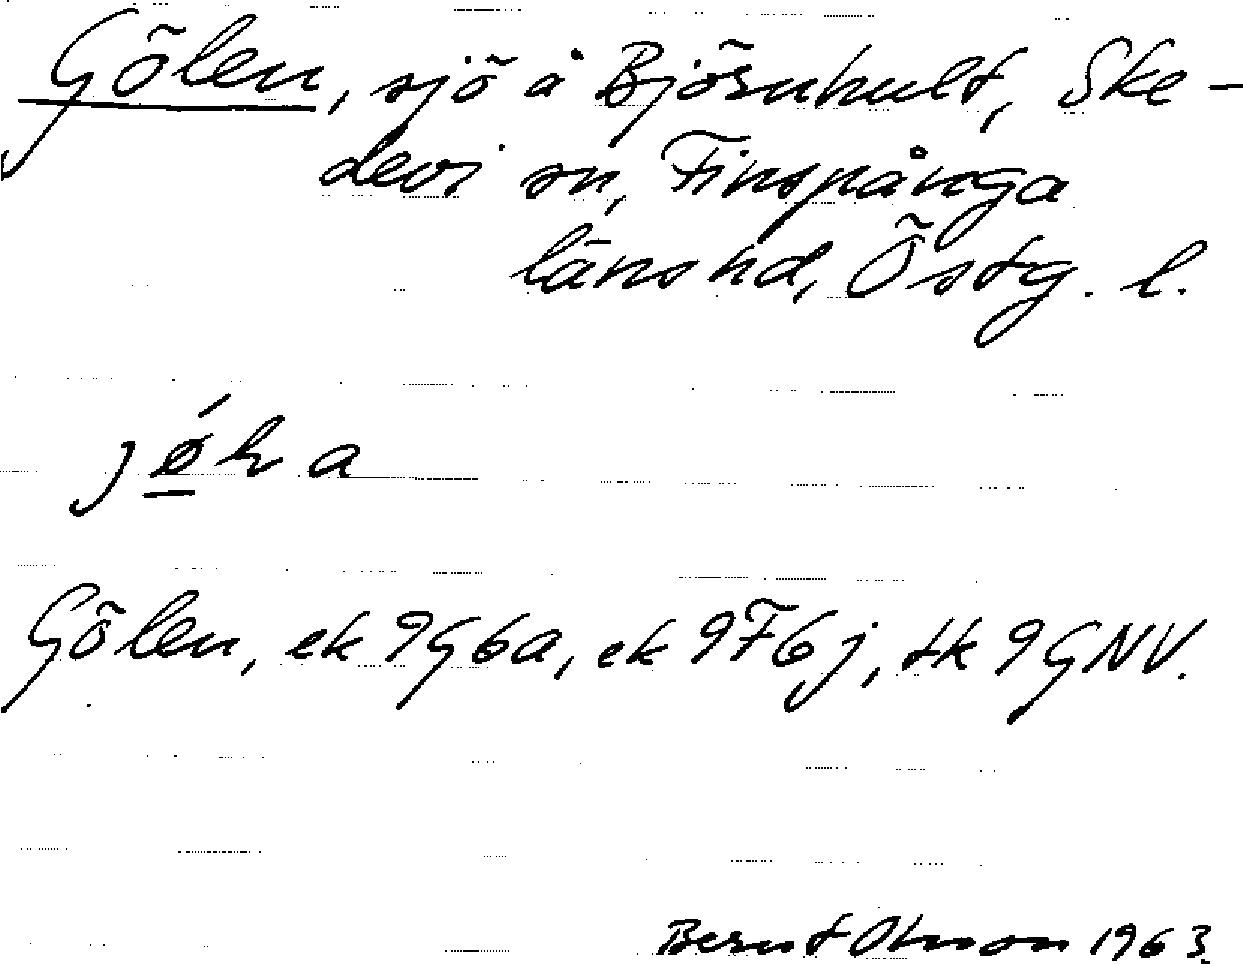 Gölen, sjö å Björnhult, Ske-
devi sn, Finspånga
läns hd, Östg. l.
Gölen, ek 9G6a, ek 9F6j, tk 9GNV.
Bernt Olsson 1963.